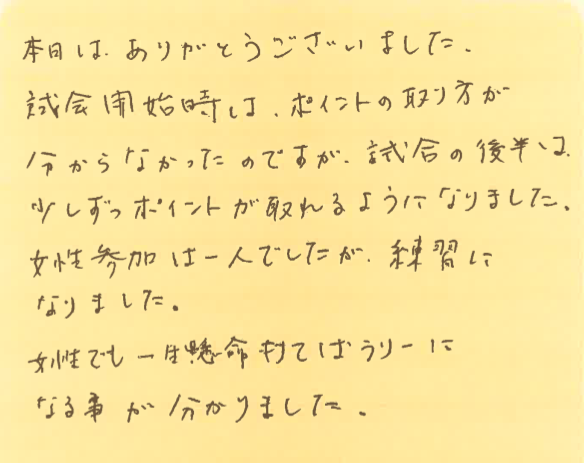 本日は、ありがとうございました。
試会開始時は、ポイントの取り方が
分からなかったのですが、試合の後半は、
少しずつポイントが取れるようになりました。
女性参加は一人でしたが、練習に
なりました。
女性でも一生懸命打てばラリーに
なる事が分かりました。